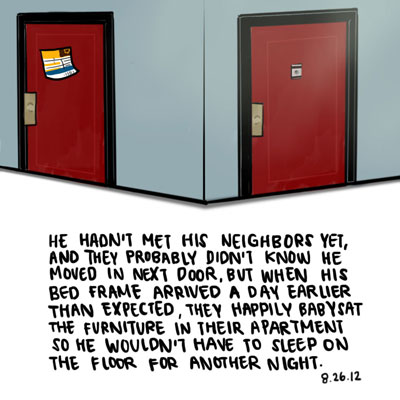 HE HADN'T MET HIS NEIGHBORS YET,
AND THEY PROBABLY DIDN'T KNOW HE
MOVED IN NEXT DOOR, BUT WHEN HIS
BED FRAME ARRIVED A DAY EARLIER
THAN EXPECTED, THEY HAPPILY BABYSAT
THE FURNITURE IN THEIR APARTMENT
SO HE WOULDN'T HAVE TO SLEEP ON
THE FLOOR FOR ANOTHER NIGHT.
8.26.12